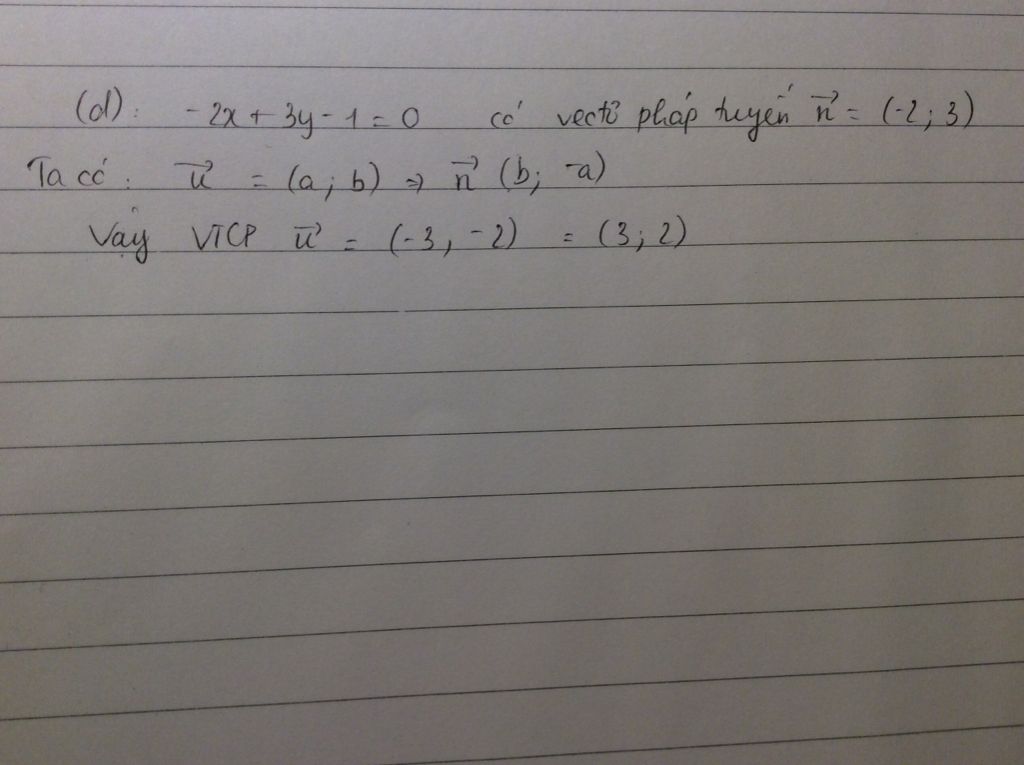 (d): -2x + 3y - 1 = 0 có vectơ pháp tuyến n⃗ = (-2; 3)
Ta có: u⃗ = (a; b) => n⃗ (b; -a)
Vậy VTCP u⃗ = (-3, -2) = (3; 2)